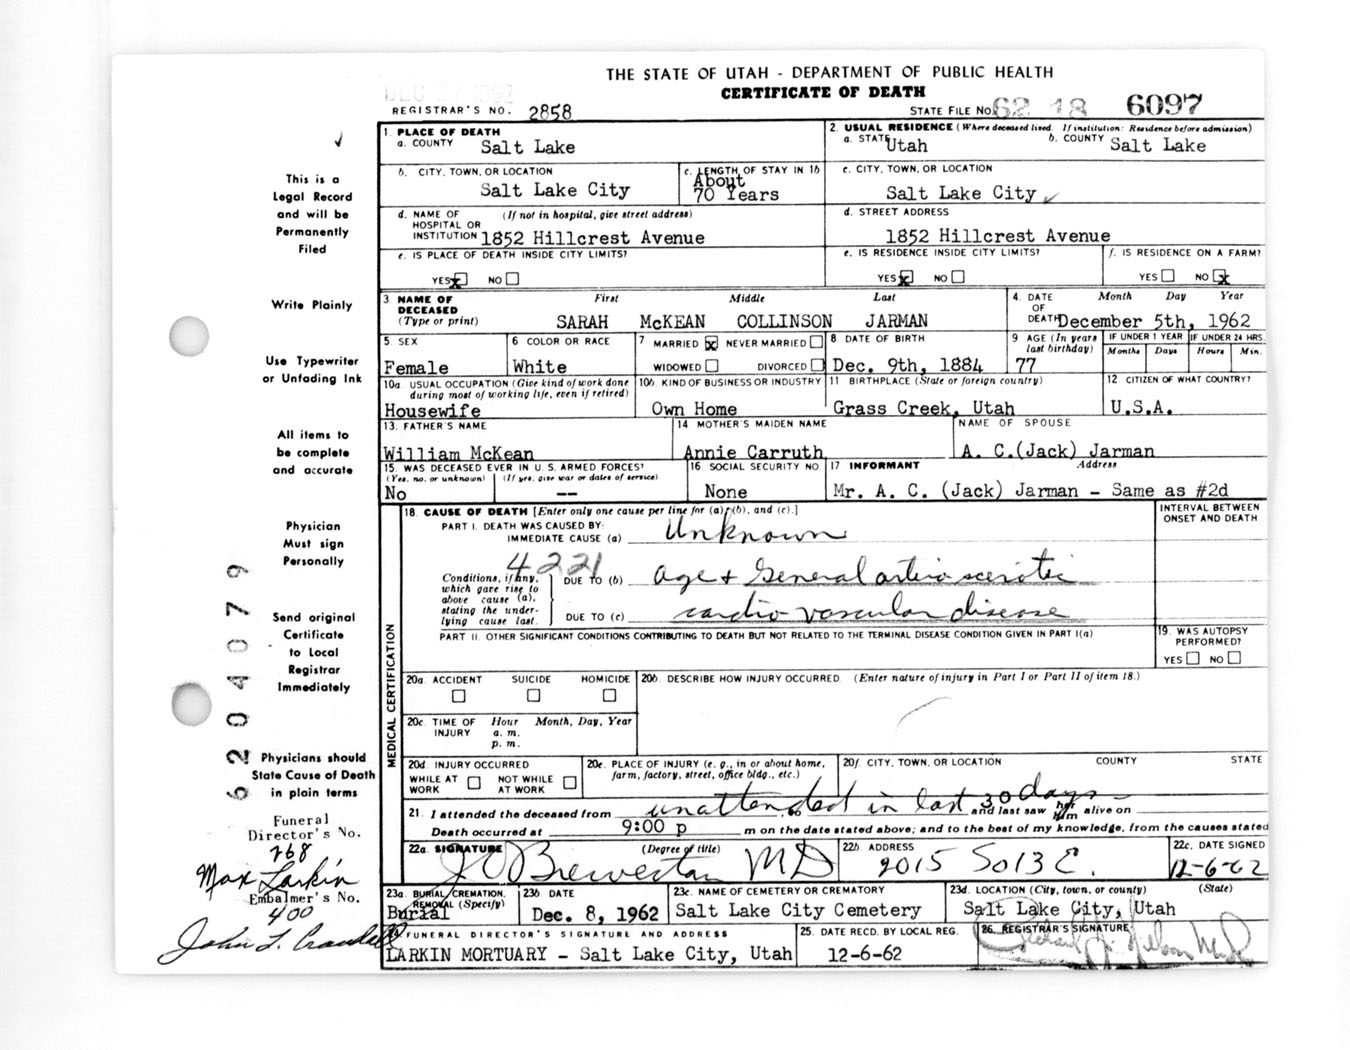 THE STATE OF UTAH - DEPARTMENT OF PUBLIC HEALTH
CERTIFICATE OF DEATH
REGISTRAR'S NO. 2858
STATE FILE NO. 62 18 6097
This is a
Legal Record
and will be
Permanently
Filed
Write Plainly
Use Typewriter
or Unfading Ink
All items to
be complete
and accurate
Physician
Must sign
Personally
Send original
Certificate
to Local
Registrar
Immediately
Physicians should
State Cause of Death
in plain terms
Funeral
Director's No.
268
Max Larkin
Embalmer's No.
400
John L. Crandall
6204079
1. PLACE OF DEATH
a. COUNTY Salt Lake
2. USUAL RESIDENCE (Where deceased lived. If institution: Residence before admission)
a. STATE Utah b. COUNTY Salt Lake
b. CITY, TOWN, OR LOCATION
Salt Lake City
c. LENGTH OF STAY IN 1b
About
70 Years
c. CITY, TOWN, OR LOCATION
Salt Lake City
d. NAME OF (If not in hospital, give street address)
HOSPITAL OR
INSTITUTION 1852 Hillcrest Avenue
d. STREET ADDRESS
1852 Hillcrest Avenue
e. IS PLACE OF DEATH INSIDE CITY LIMITS?
YES x NO
e. IS RESIDENCE INSIDE CITY LIMITS?
YES x NO
f. IS RESIDENCE ON A FARM?
YES NO x
3 NAME OF DECEASED (Type or print) First Middle Last
SARAH McKEAN COLLINSON JARMAN
4. DATE OF DEATH Month Day Year
December 5th, 1962
5 SEX
Female
6 COLOR OR RACE
White
7 MARRIED x NEVER MARRIED
WIDOWED DIVORCED
8 DATE OF BIRTH
Dec. 9th, 1884
9 AGE (In years last birthday)
77
IF UNDER 1 YEAR IF UNDER 24 HRS.
Months Days Hours Min.
10a. USUAL OCCUPATION (Give kind of work done
during most of working life, even if retired)
Housewife
10b. KIND OF BUSINESS OR INDUSTRY
Own Home
11 BIRTHPLACE (State or foreign country)
Grass Creek, Utah
12 CITIZEN OF WHAT COUNTRY?
U.S.A.
13. FATHER'S NAME
William McKean
14 MOTHER'S MAIDEN NAME
Annie Carruth
NAME OF SPOUSE
A. C.(Jack) Jarman
15. WAS DECEASED EVER IN U. S. ARMED FORCES?
(Yes, no, or unknown) (If yes, give war or dates of service)
No --
16 SOCIAL SECURITY NO.
None
17 INFORMANT Address
Mr. A. C. (Jack) Jarman - Same as #2d
MEDICAL CERTIFICATION
18. CAUSE OF DEATH [Enter only one cause per line for (a), (b), and (c).]
INTERVAL BETWEEN
ONSET AND DEATH
PART I. DEATH WAS CAUSED BY:
IMMEDIATE CAUSE (a) Unknown
4221
Conditions, if any,
which gave rise to
above cause (a),
stating the under-
lying cause last.
DUE TO (b) age & General arterio scerotic
DUE TO (c) cardio vascular disease
PART II. OTHER SIGNIFICANT CONDITIONS CONTRIBUTING TO DEATH BUT NOT RELATED TO THE TERMINAL DISEASE CONDITION GIVEN IN PART I(a)
19. WAS AUTOPSY
PERFORMED?
YES NO
20a. ACCIDENT SUICIDE HOMICIDE
20b. DESCRIBE HOW INJURY OCCURRED. (Enter nature of injury in Part I or Part II of item 18.)
20c. TIME OF INJURY Hour Month, Day, Year
a. m.
p. m.
20d. INJURY OCCURRED
WHILE AT WORK NOT WHILE AT WORK
20e. PLACE OF INJURY (e. g., in or about home,
farm, factory, street, office bldg., etc.)
20f. CITY, TOWN, OR LOCATION COUNTY STATE
21. I attended the deceased from unattended in last 30 days to and last saw her him alive on
Death occurred at 9:00 p m on the date stated above; and to the best of my knowledge, from the causes stated
22a. SIGNATURE (Degree or title)
J O Brewerton MD
22b ADDRESS
2015 So 13 E.
22c. DATE SIGNED
12-6-62
23a. BURIAL, CREMATION,
REMOVAL (Specify)
Burial
23b DATE
Dec. 8, 1962
23c. NAME OF CEMETERY OR CREMATORY
Salt Lake City Cemetery
23d. LOCATION (City, town, or county) (State)
Salt Lake City, Utah
FUNERAL DIRECTOR'S SIGNATURE AND ADDRESS
LARKIN MORTUARY - Salt Lake City, Utah
25. DATE RECD. BY LOCAL REG.
12-6-62
26. REGISTRAR'S SIGNATURE